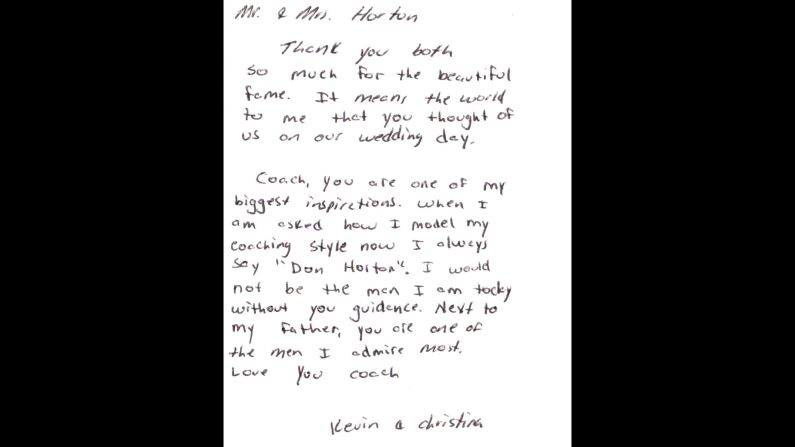 Mr. & Mrs. Horton
Thank you both
so much for the beautiful
fame. It means the world
to me that you thought of
us on our wedding day.
Coach, you are one of my
biggest inspirations. When I
am asked how I model my
coaching style now I always
say "Don Horton". I would
not be the man I am today
without you guidance. Next to
my father, you are one of
the men I admire most.
Love you coach
Kevin & Christina